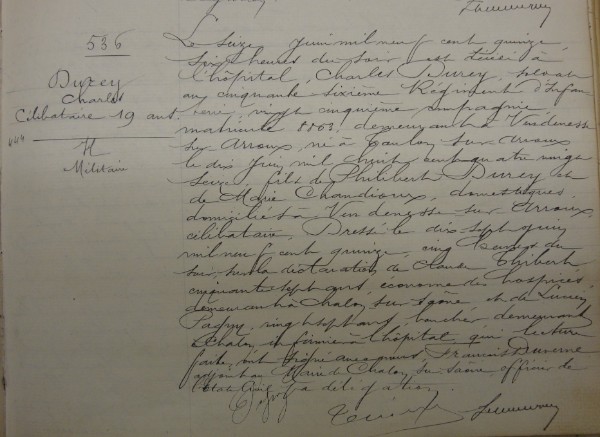 536
Durey
Charles
Célibataire 19 ans.
444
H
Militaire
Le seize juin mil neuf cent quinze,
six heures du soir est décédé à
l'hôpital, Charles Durey, soldat
au cinquante sixième Régiment d'Infan
terie, vingt cinquième compagnie
matricule 8862, demeurant à Vendenesse
sur Arroux, né à Toulon sur Arroux
le dix juin mil huit cent quatre vingt
seize, fils de Philibert Durey et
de Marie Chandioux, domestiques
domiciliés à Vendenesse sur Arroux,
célibataire. Dressé le dix sept juin
mil neuf cent quinze, cinq heures du
soir, sur la déclaration de Thibert
cinquante sept ans, économe des hospices,
demeurant à Chalon sur Saône, et de Lucien
vingt sept ans, demeurant
à Chalon, infirmier à l'hôpital, qui, lecture
faite, ont signé avec nous, François Duverne
adjoint au Maire de Chalon sur Saône officier de
l'Etat Civil par délégation.